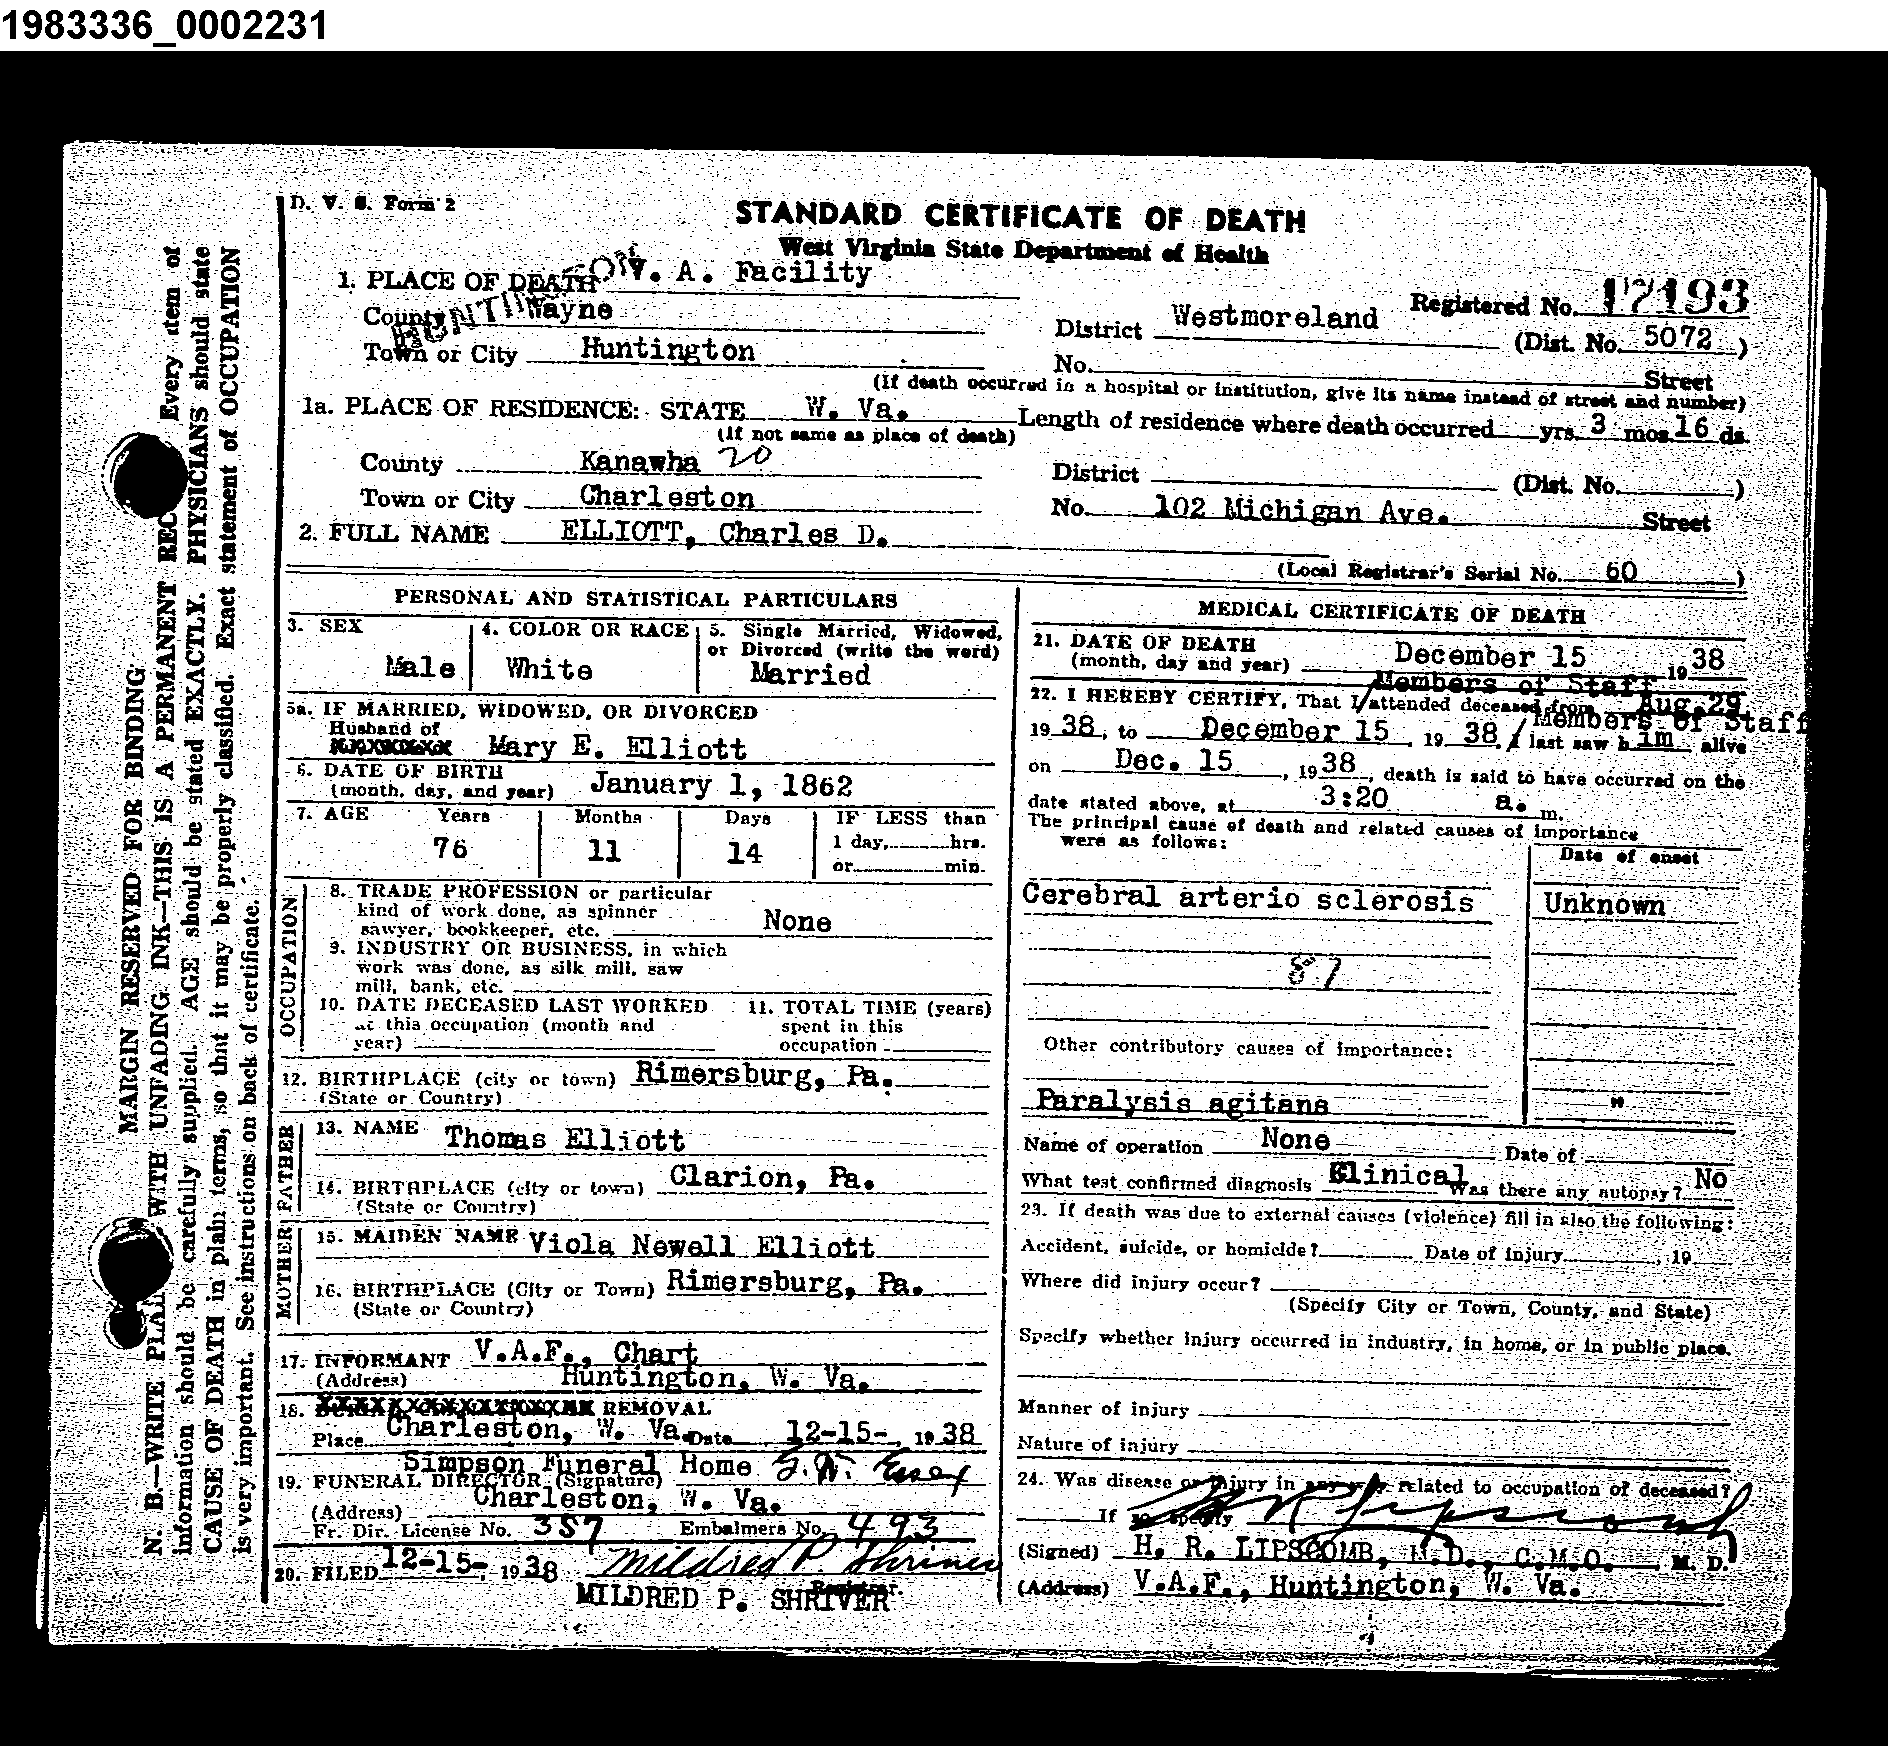 1983336_0002231
D. V. S. Form 2
STANDARD CERTIFICATE OF DEATH
West Virginia State Department of Health
1. PLACE OF DEATH V. A. Facility
Registered No. 17193
County Wayne
District Westmoreland (Dist. No. 5072 )
Town or City Huntington
No. Street
(If death occurred in a hospital or institution, give its name instead of street and number)
1a. PLACE OF RESIDENCE: STATE W. Va. Length of residence where death occurred yrs. 3 mos. 16 ds.
(If not same as place of death)
County Kanawha 20
District (Dist. No. )
Town or City Charleston
No. 102 Michigan Ave. Street
2. FULL NAME ELLIOTT, Charles D.
(Local Registrar's Serial No. 60 )
PERSONAL AND STATISTICAL PARTICULARS
3. SEX Male
4. COLOR OR RACE White
5. Single Married, Widowed, or Divorced (write the word) Married
5a. IF MARRIED, WIDOWED, OR DIVORCED
Husband of Mary E. Elliott
6. DATE OF BIRTH
(month, day, and year) January 1, 1862
7. AGE Years Months Days IF LESS than
76 11 14 1 day, hrs.
or min.
OCCUPATION
8. TRADE PROFESSION or particular
kind of work done, as spinner
sawyer, bookkeeper, etc. None
9. INDUSTRY OR BUSINESS, in which
work was done, as silk mill, saw
mill, bank, etc.
10. DATE DECEASED LAST WORKED
at this occupation (month and
year)
11. TOTAL TIME (years)
spent in this
occupation
12. BIRTHPLACE (city or town) Rimersburg, Pa.
(State or Country)
FATHER
13. NAME Thomas Elliott
14. BIRTHPLACE (city or town) Clarion, Pa.
(State or Country)
MOTHER
15. MAIDEN NAME Viola Newell Elliott
16. BIRTHPLACE (City or Town) Rimersburg, Pa.
(State or Country)
17. INFORMANT V.A.F., Chart
(Address) Huntington, W. Va.
18. REMOVAL
Place Charleston, W. Va. Date 12-15-, 1938
Simpson Funeral Home G. W. Essex
19. FUNERAL DIRECTOR (Signature)
(Address) Charleston, W. Va.
Fr. Dir. License No. 387 Embalmers No. 493
20. FILED 12-15-, 1938 Mildred P. Shriver
Registrar.
MILDRED P. SHRIVER
MEDICAL CERTIFICATE OF DEATH
21. DATE OF DEATH
(month, day and year) December 15 1938
Members of Staff
22. I HEREBY CERTIFY, That I/attended deceased from Aug.29,
Members of Staff
1938, to December 15, 1938, / I last saw him alive
on Dec. 15, 1938, death is said to have occurred on the
date stated above, at 3:20 a. m.
The principal cause of death and related causes of importance
were as follows:
Date of onset
Cerebral arterio sclerosis Unknown
87
Other contributory causes of importance:
Paralysis agitans "
Name of operation None Date of
What test confirmed diagnosis Clinical Was there any autopsy? No
23. If death was due to external causes (violence) fill in also the following:
Accident, suicide, or homicide? Date of injury , 19
Where did injury occur?
(Specify City or Town, County, and State)
Specify whether injury occurred in industry, in home, or in public place.
Manner of injury
Nature of injury
24. Was disease or injury in any way related to occupation of deceased?
If so specify H R Lipscomb
(Signed) H. R. LIPSCOMB, M.D., C.M.O. M. D.
(Address) V.A.F., Huntington, W. Va.
MARGIN RESERVED FOR BINDING
N. B.—WRITE WITH UNFADING INK—THIS IS A PERMANENT Every item of
information should be carefully supplied. AGE should be stated EXACTLY. PHYSICIANS should state
CAUSE OF DEATH in plain terms, so that it may be properly classified. Exact statement of OCCUPATION
is very important. See instructions on back of certificate.